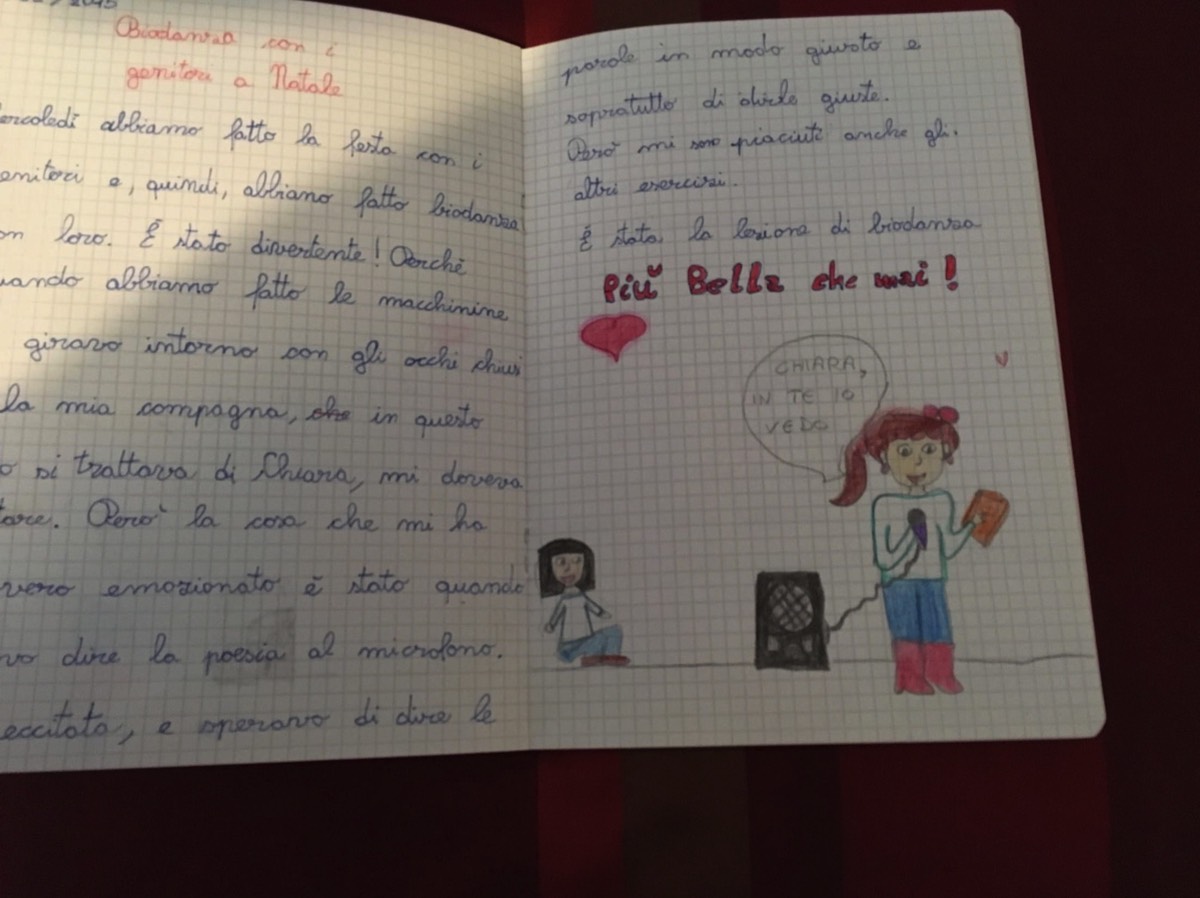 Biodanza con i
genitori a Natale
ercoledì abbiamo fatto la festa con i
enitori e, quindi, abbiamo fatto biodanza
on loro. È stato divertente! Perché
uando abbiamo fatto le macchinine
giravo intorno con gli occhi chiusi
la mia compagna, che in questo
o si trattava di Chiara, mi doveva
tare. Però la cosa che mi ha
vero emozionato è stato quando
vo dire la poesia al microfono.
eccitata, e speravo di dire le
parole in modo giusto e
sopratutto di dirle giuste.
Però mi sono piaciuti anche gli.
altri esercizi.
È stata la lezione di biodanza
Più Bella che mai!
CHIARA,
IN TE IO
VEDO